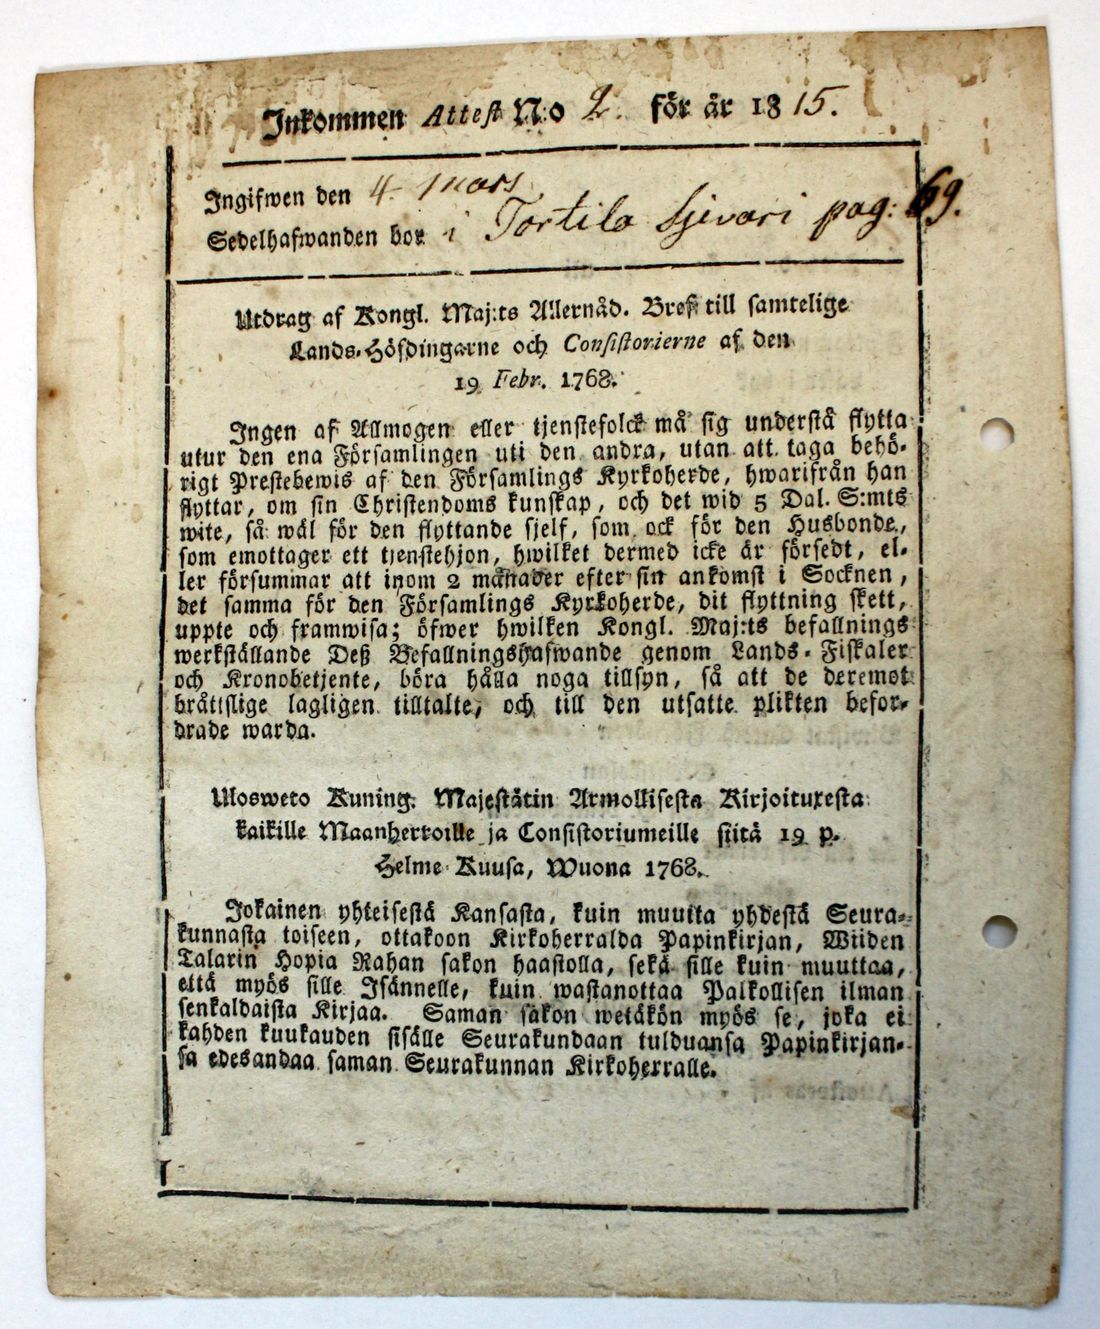 Inkommen Attest N:o 2. för år 1815.
Ingifwen den 4 mars
Sedelhafwanden bor i Tortila Sjivari pag: 69.
Utdrag af Kongl. Maj:ts Allernåd. Bref till samtelige
Lands-Höfdingarne och Consistorierne af den
19 Febr. 1768.
Ingen af Allmogen eller tjenstefolck må sig understå flytta
utur den ena Församlingen uti den andra, utan att taga behö-
rigt Prestebewis af den Församlings Kyrkoherde, hwarifrån han
flyttar, om sin Christendoms kunskap, och det wid 5 Dal. S:mts
wite, så wäl för den flyttande sjelf, som ock för den Husbonde,
som emottager ett tjenstehjon, hwilket dermed icke är försedt, el-
ler försummar att inom 2 månader efter sin ankomst i Socknen,
det samma för den Församlings Kyrkoherde, dit flyttning skett,
uppte och framwisa; öfwer hwilken Kongl. Maj:ts befallnings
werkställande Deß Befallningshafwande genom Lands-Fiskaler
och Kronobetjente, böra hålla noga tillsyn, så att de deremot
bråttslige lagligen tilltalte, och till den utsatte plikten befor-
drade warda.
Ulosweto Kuning. Majestätin Armollisesta Kirjoituxesta
kaikille Maanherroille ja Consistoriumeille siitä 19 p.
Helme Kuusa, Wuona 1768.
Jokainen yhteisestä Kansasta, kuin muutta yhdestä Seura-
kunnasta toiseen, ottakoon Kirkoherralda Papinkirjan, Wiiden
Talarin Hopia Rahan sakon haastolla, sekä sille kuin muuttaa,
että myös sille Isännelle, kuin wastanottaa Palkollisen ilman
senkaldaista Kirjaa. Saman sakon wetäkön myös se, joka ei
kahden kuukauden sisälle Seurakundaan tulduansa Papinkirjan-
sa edesandaa saman Seurakunnan Kirkoherralle.